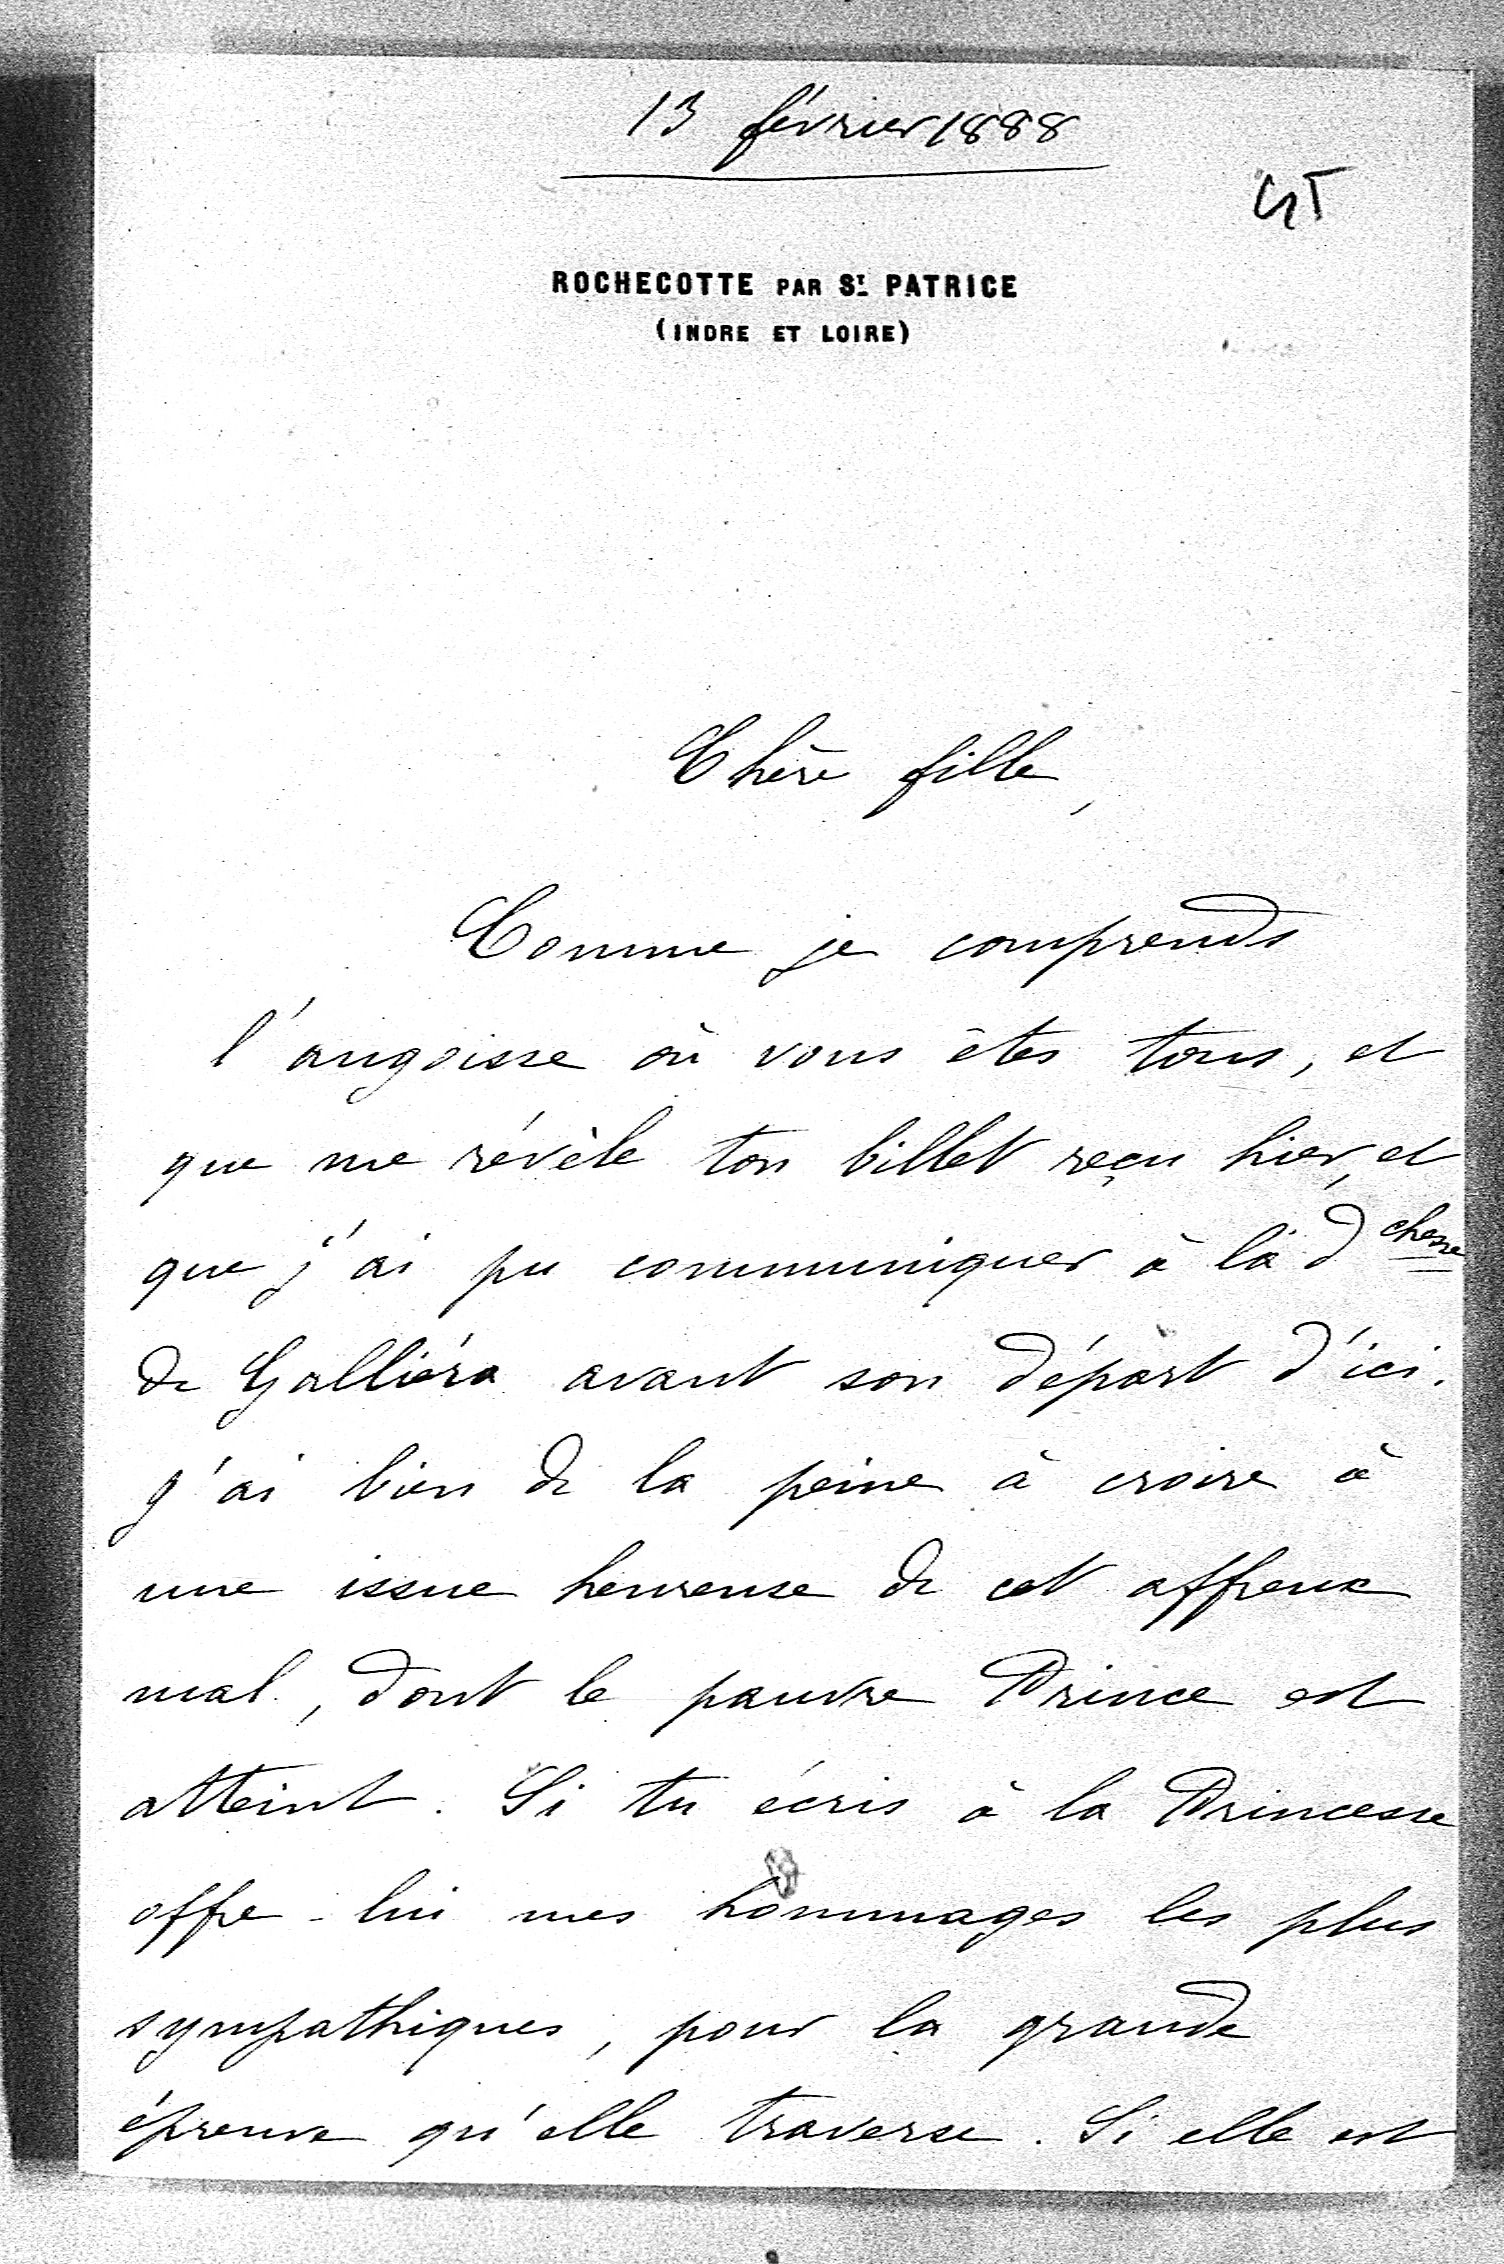 13 février 1888
ROCHECOTTE PAR ST. PATRICE
(INDRE ET LOIRE)
Chère fille,
Comme je comprends
l'angoisse où vous êtes tous, et
que me révèle ton billet reçu hier, et
que j'ai pu communiquer à la dchesse
de Galliéra avant son départ d'ici.
J'ai bien de la peine à croire à
une issue heureuse de cet affreux
mal, dont le pauvre Prince est
atteint. Si tu écris à la Princesse
offre-lui mes hommages les plus
sympathiques, pour la grande
épreuve qu'elle traverse. Si elle est